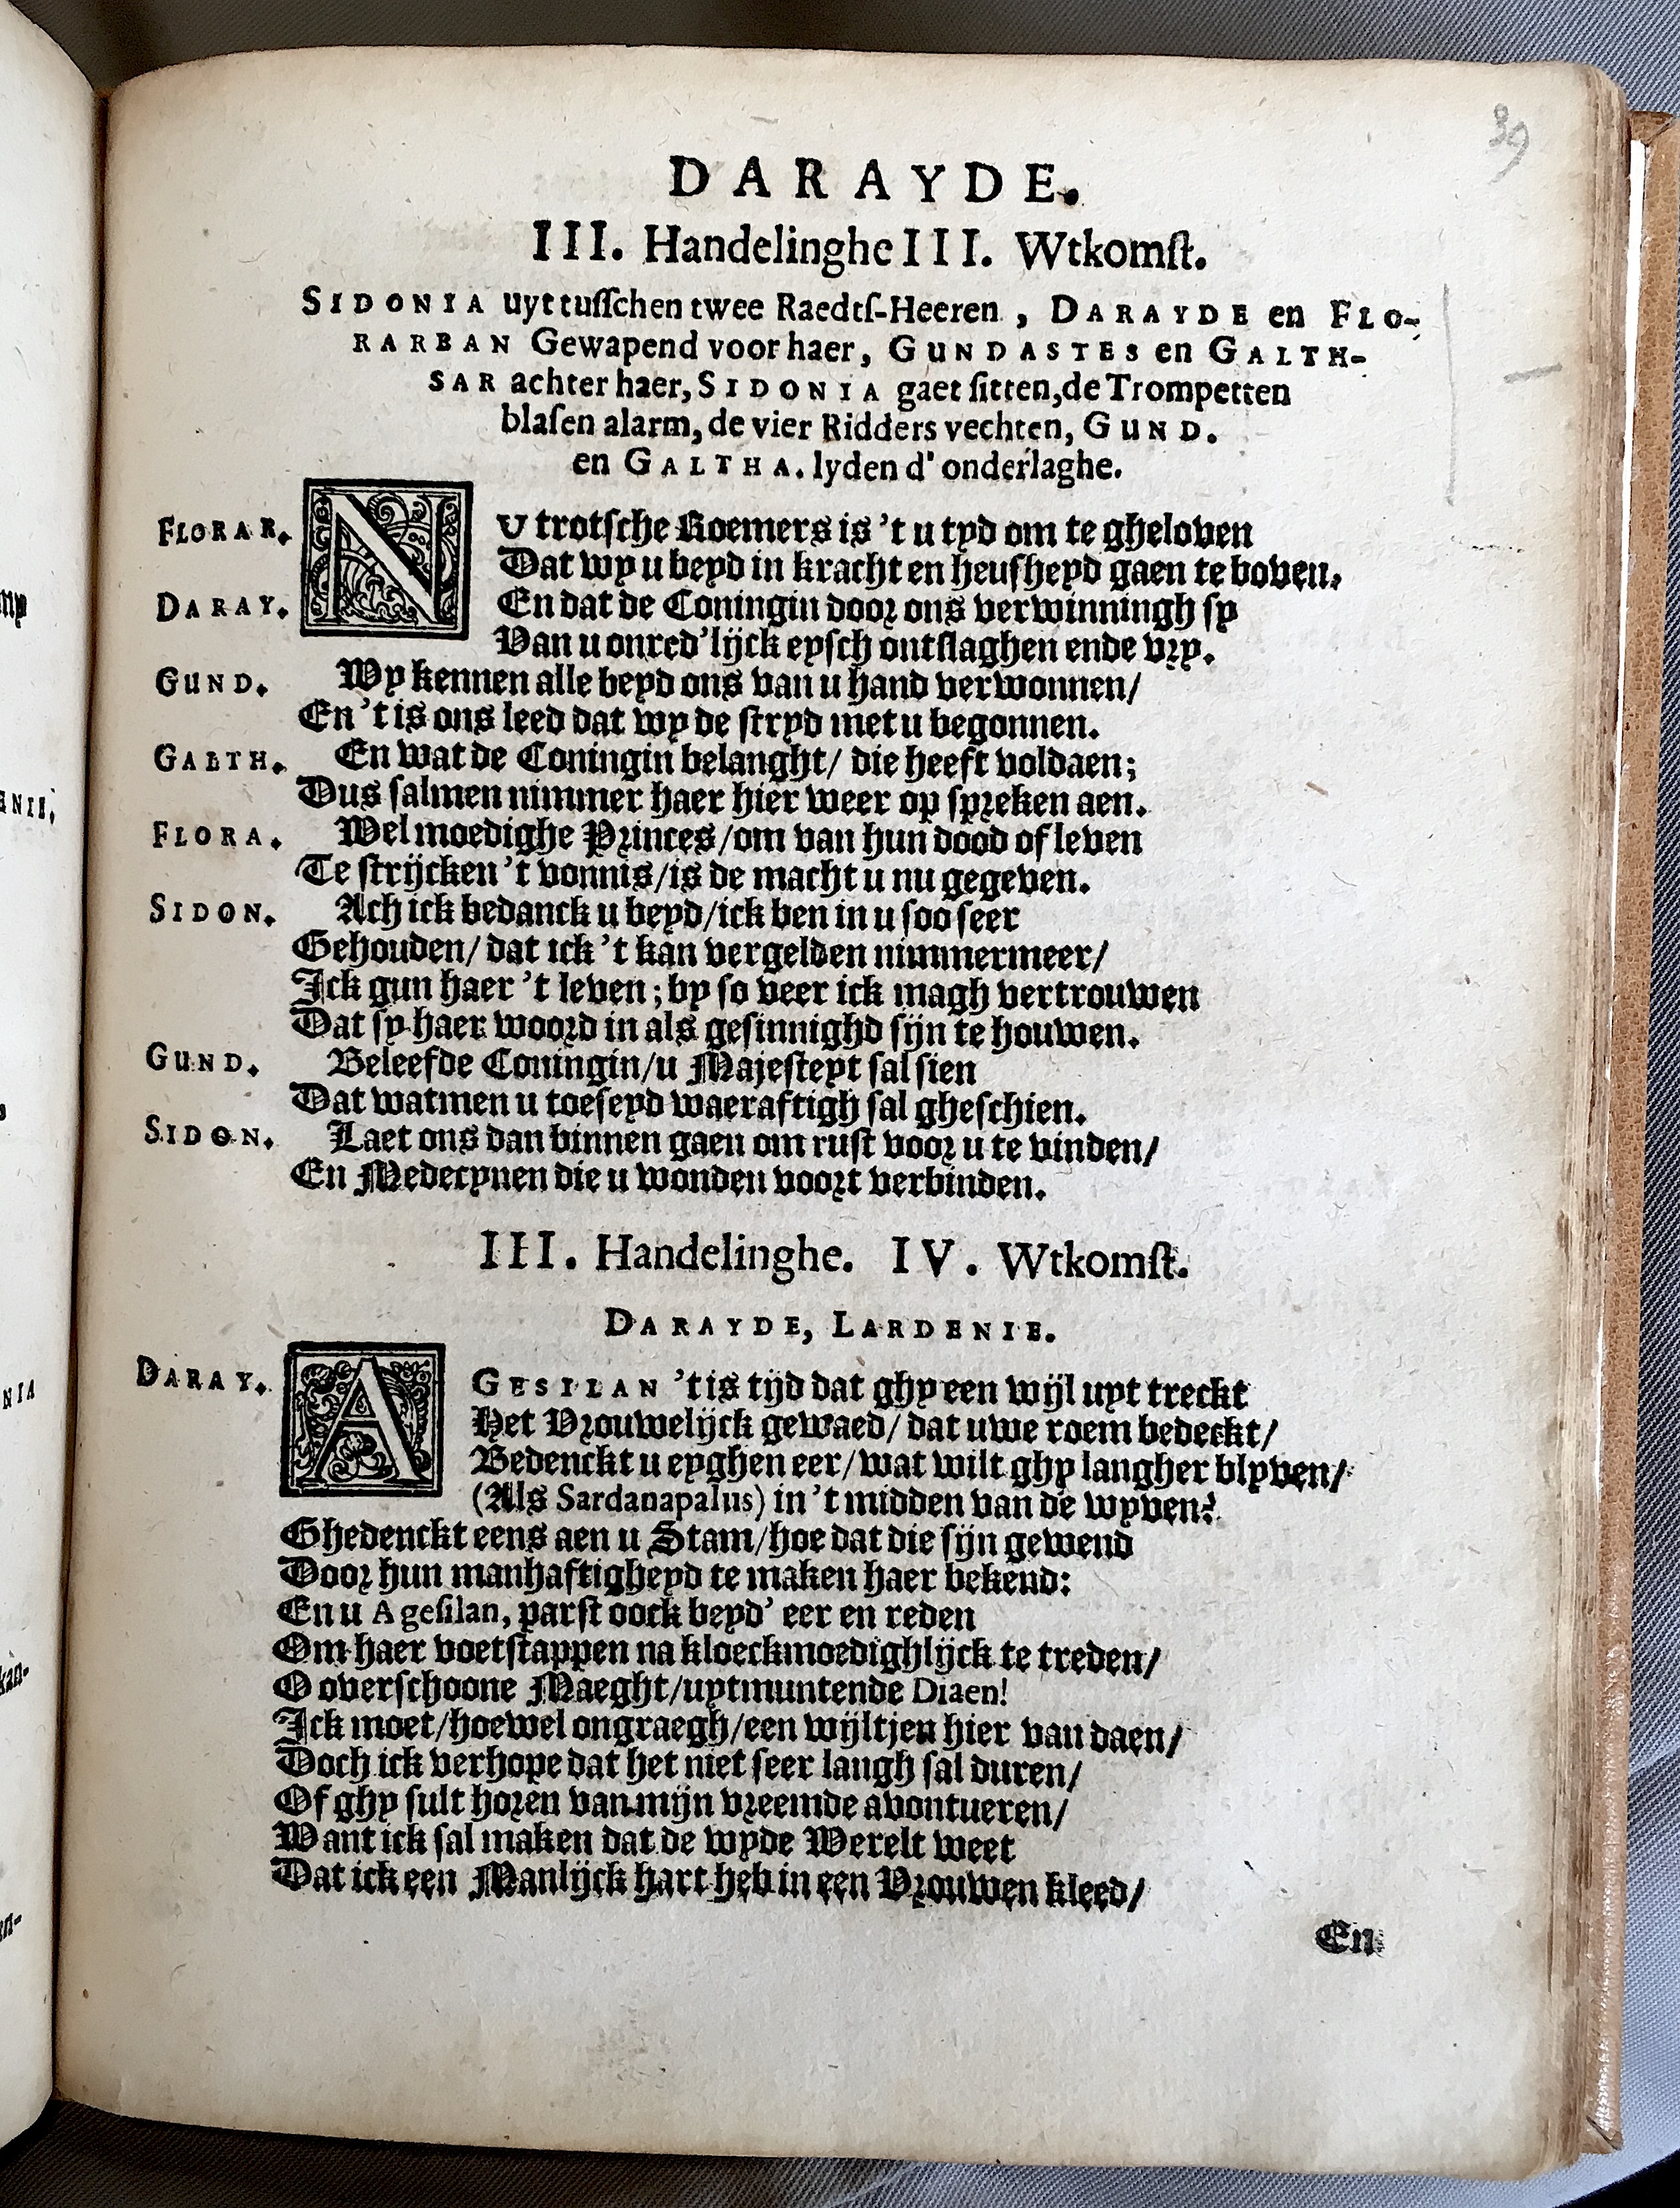 39
DARAYDE.
III. Handelinghe III. Wtkomſt.
SIDONIA uyt tuſſchen twee Raedtſ-Heeren, DARAYDE en FLO-
RARBAN Gewapend voor haer, GUNDASTES en GALTH-
SAR achter haer, SIDONIA gaet ſitten, de Trompetten
blaſen alarm, de vier Ridders vechten, GUND.
en GALTHA. lyden d' onderlaghe.
FLORAR. NU trotſche Roemers is 't u tyd om te gheloven
Dat wy u beyd in kracht en heuſheyd gaen te boven.
DARAY. En dat de Coningin door ons verwinningh ſy
Van u onred'lijck eyſch ontſlaghen ende vry.
GUND. Wy kennen alle beyd ons van u hand verwonnen/
En 't is ons leed dat wy de ſtryd met u begonnen.
GALTH. En wat de Coningin belanght/ die heeft voldaen;
Dus ſalmen nimmer haer hier weer op ſpreken aen.
FLORA. Wel moedighe Princes/om van hun dood of leven
Te ſtrijcken 't vonnis/is de macht u nu gegeven.
SIDON. Ach ick bedanck u beyd/ick ben in u ſoo ſeer
Gehouden/ dat ick 't kan vergelden nimmermeer/
Ick gun haer 't leven; by ſo veer ick magh vertrouwen
Dat ſy haer woord in als geſinnighd ſijn te houwen.
GUND. Beleefde Coningin/u Majeſteyt ſal ſien
Dat watmen u toeſeyd waeraftigh ſal gheſchien.
SIDON. Laet ons dan binnen gaen om ruſt voor u te vinden/
En Medecynen die u wonden voort verbinden.
III. Handelinghe. IV. Wtkomſt.
DARAYDE, LARDENIE.
DARAY. AGESILAN 't is tijd dat ghy een wijl uyt treckt
Het Vrouwelijck gewaed/ dat uwe roem bedeckt/
Bedenckt u eyghen eer/wat wilt ghy langher blyven/
(Als Sardanapalus) in 't midden van de wyven?
Ghedenckt eens aen u Stam/hoe dat die ſijn gewend
Door hun manhaftigheyd te maken haer bekend:
En u Ageſilan, parſt oock beyd' eer en reden
Om haer voetſtappen na kloeckmoedighlijck te treden/
O overſchoone Maeght/uytmuntende Diaen!
Ick moet/hoewel ongraegh/een wijltjen hier van daen/
Doch ick verhope dat het niet ſeer langh ſal duren/
Of ghy ſult horen van mijn vreemde avontueren/
Want ick ſal maken dat de wyde Werelt weet
Dat ick een Manlijck hart heb in een Vrouwen kleed/
En